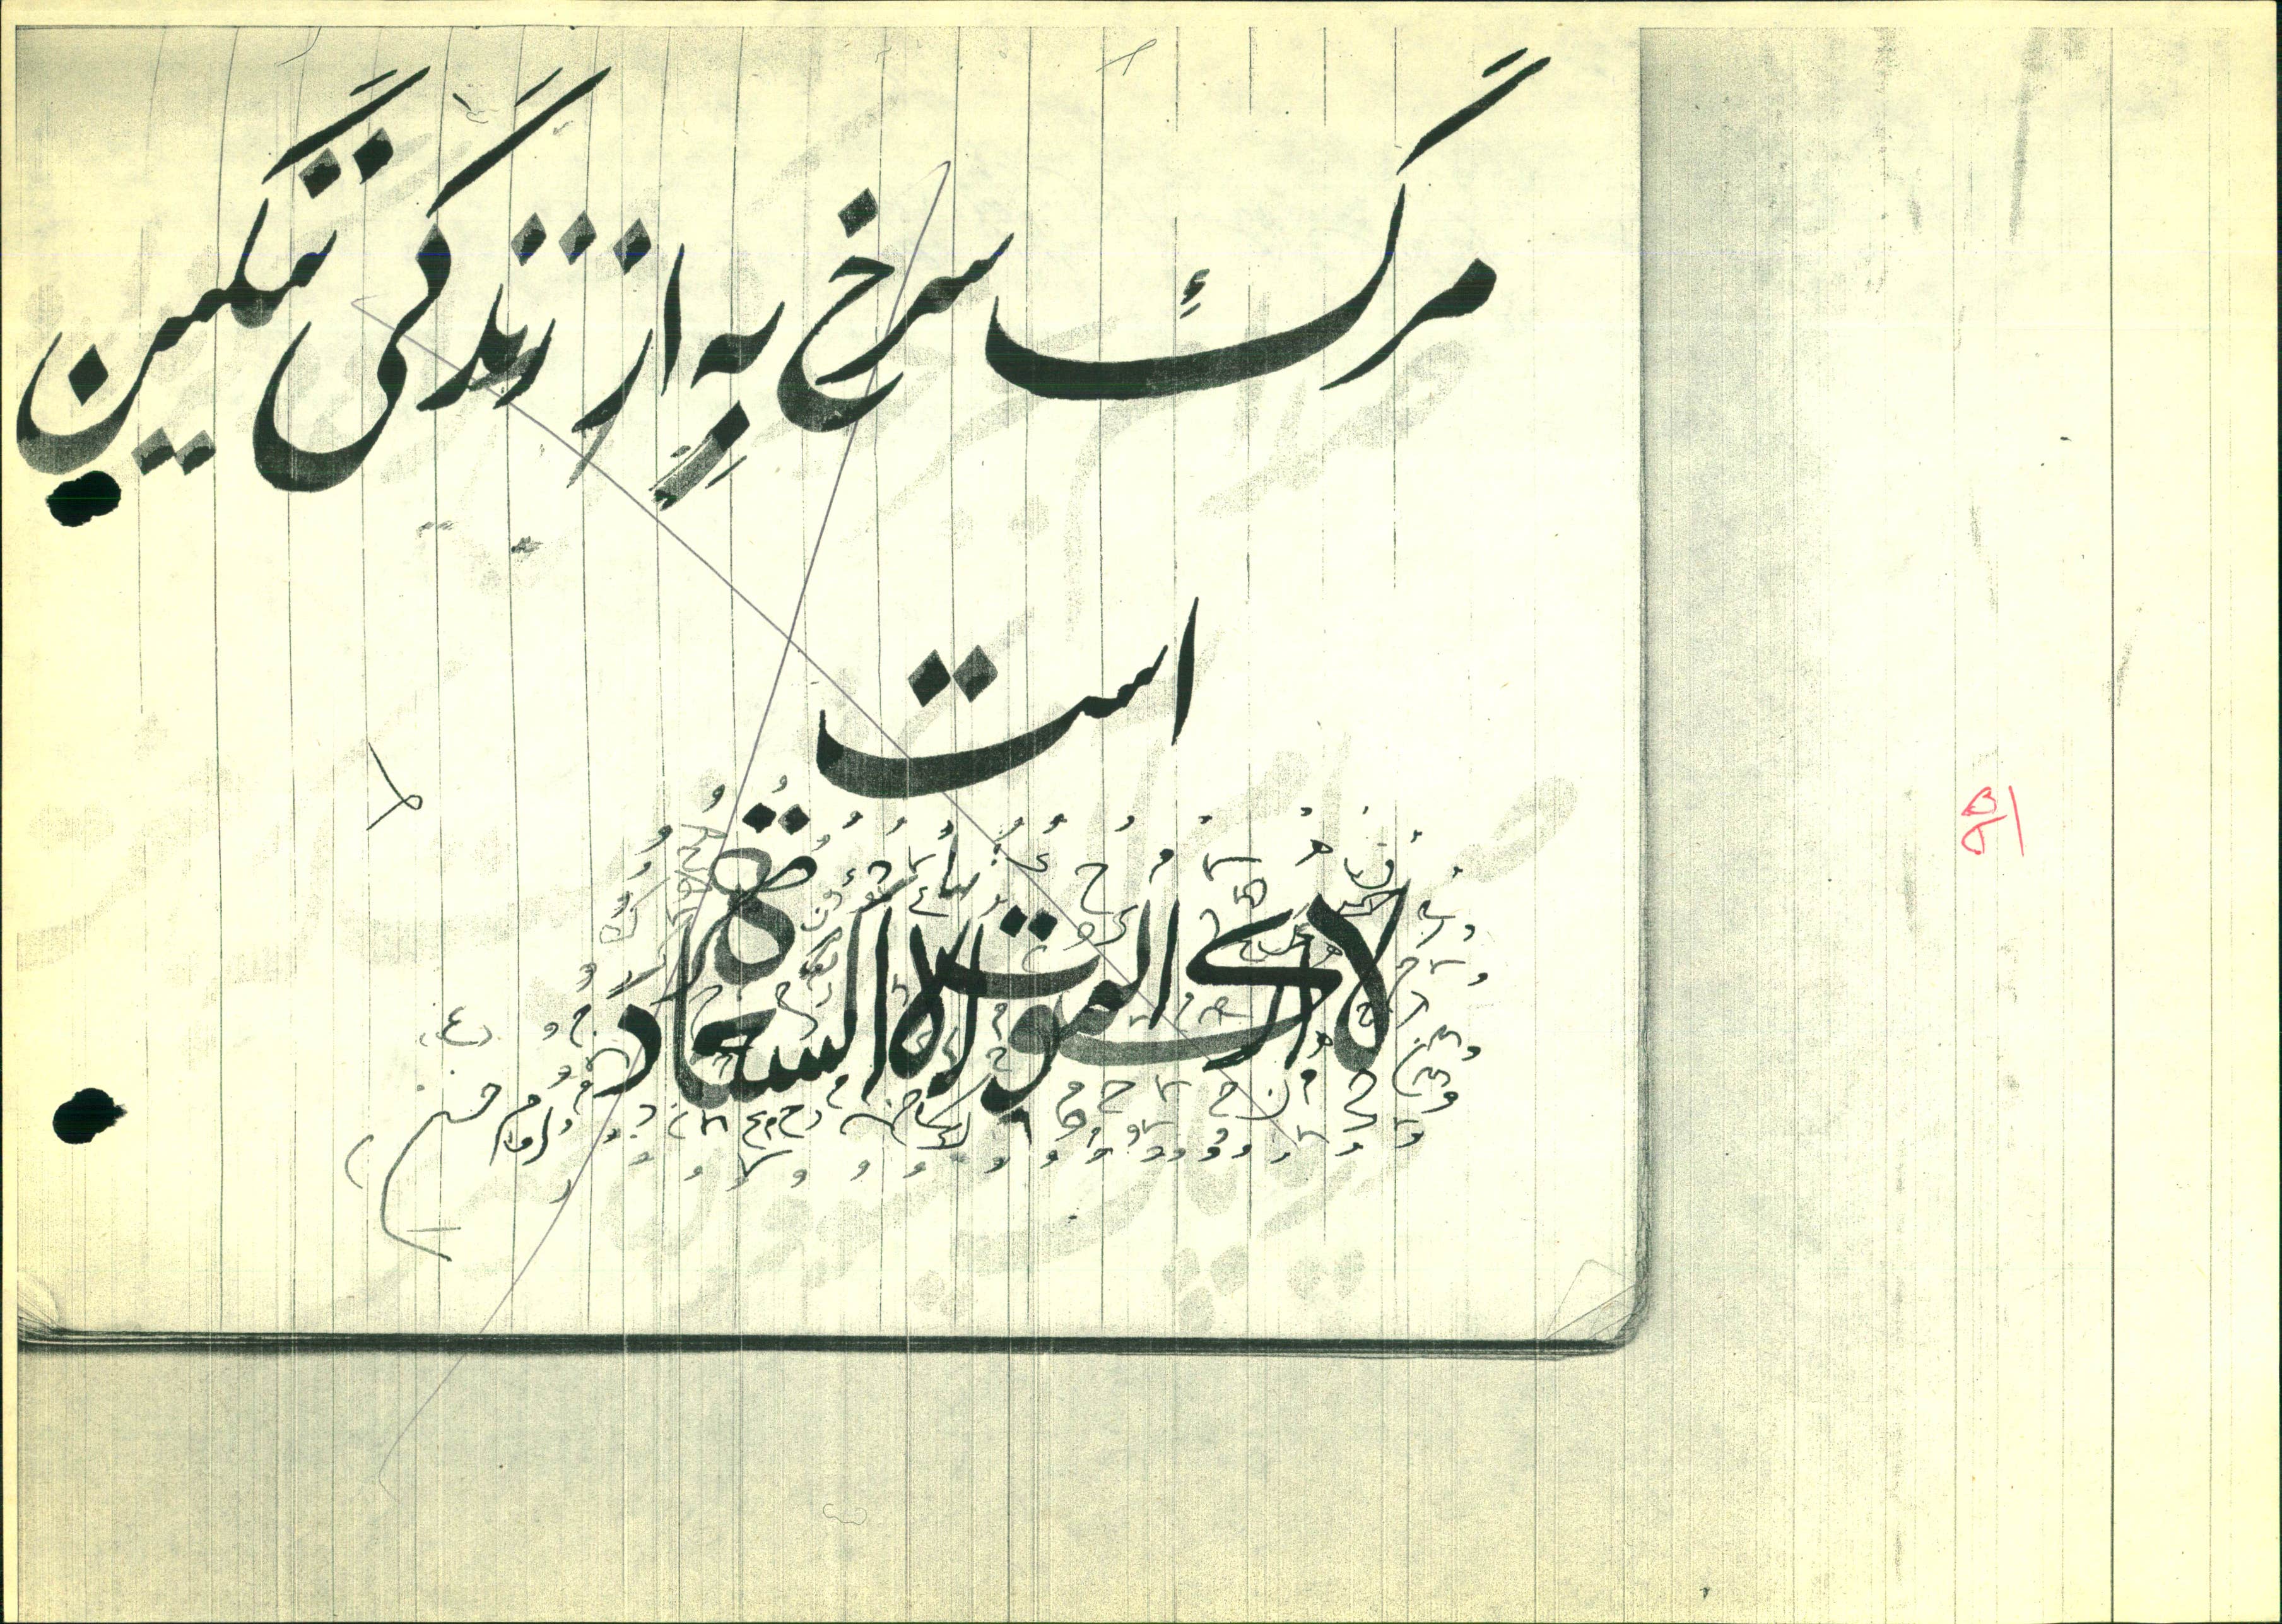 مرگ سرخ به از زندگی ننگین
است
لا اری الموت الا السعادة
امام حسین (ع)